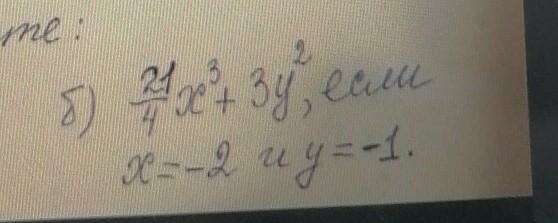 те:
б) 21/4 x³ + 3y², если
x = -2 и y = -1.